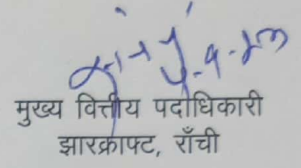 मुख्य वित्तीय पदाधिकारी
झारक्राफ्ट, राँची